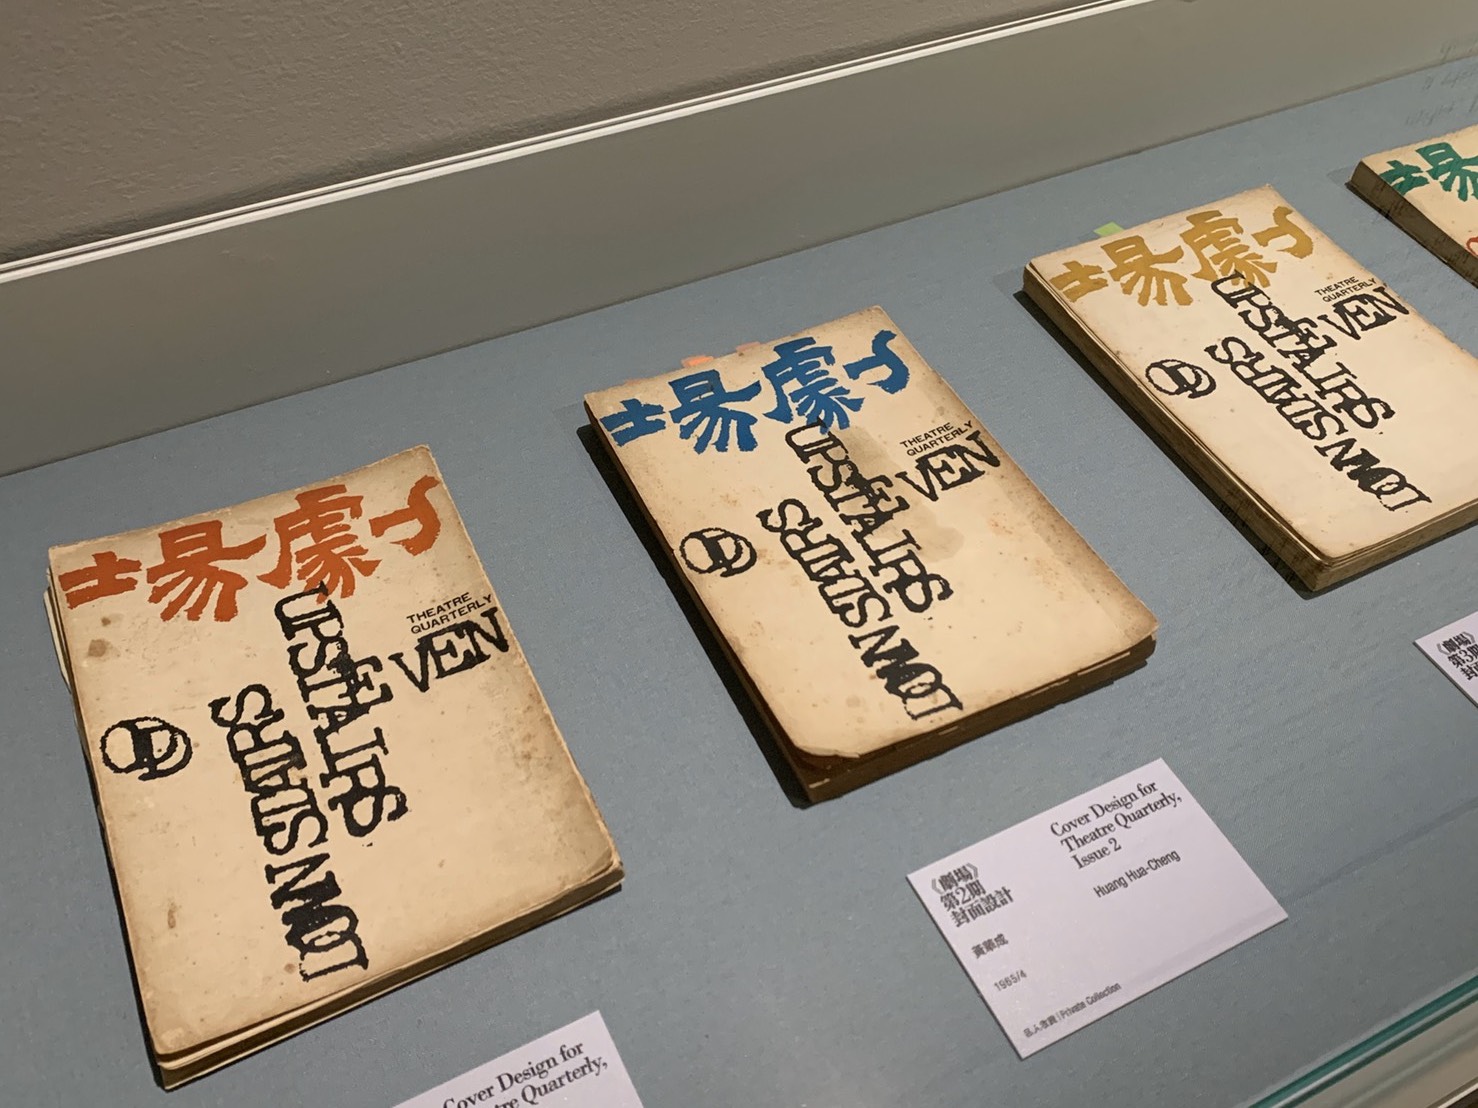 劇場
THEATRE
QUARTERLY
VEN
UPSTAIRS
DOWNSTAIRS
劇場
THEATRE
QUARTERLY
VEN
UPSTAIRS
DOWNSTAIRS
劇場
THEATRE
QUARTERLY
VEN
UPSTAIRS
DOWNSTAIRS
場
Cover Design for
Theatre Quarterly,
《劇場》
第2期
封面設計
黃華成
1965/4
私人收藏 | Private Collection
Cover Design for
Theatre Quarterly,
Issue 2
Huang Hua-Cheng
《劇場》
第3期